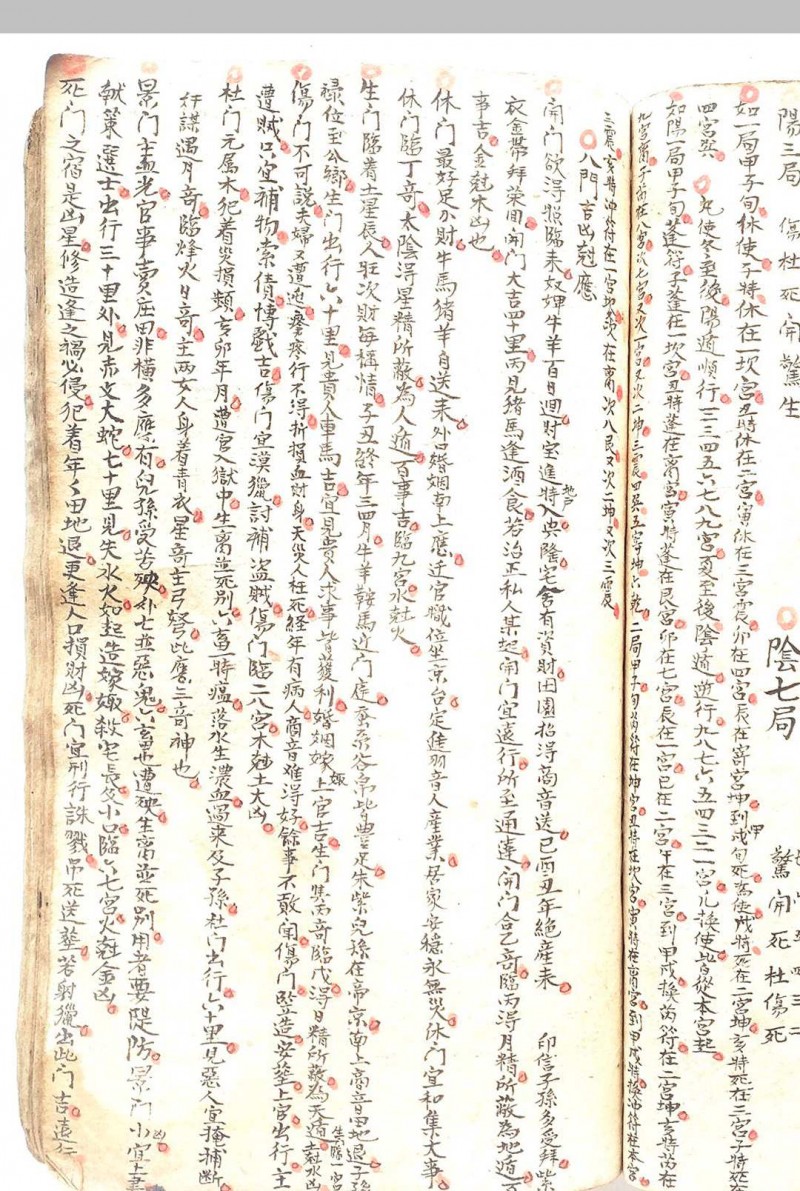 陽三局 傷杜死開驚生
陰七局
驚開死杜傷死
如一局甲子旬休使子時休在一坎宮丑時休在二宮寅休在三宮震卯在四宮辰在寄宮坤到戌旬死為使戌時死在二宮坤亥時死在三宮子時死在
四宮巽
凡使冬至後陽遁順行一二三四五六七八九宮夏至後陰遁逆行九八七六五四三二一宮凡換使皆從本宮起
如陽一局甲子旬蓬符子蓬在一坎宮丑時蓬在離宮寅時蓬在艮宮卯在七宮辰在一宮巳在二宮午在三宮到甲戌換芮符在二宮坤亥時芮在
九宮離子芮在八宮次七宮又次一宮又次二坤三震四巽五寄坤六乾二局甲子旬芮符在坤宮丑時在坎宮寅時在離宮到甲戌時換沖符在本宮
三震亥時沖符在一宮坎即在離次八艮又次二坤又次三震辰
八門吉凶尅應
開門欲得照臨來奴婢牛羊百日迴財宝進時入央隆宅舍有資財田園招得商音送巳酉丑年絕產來 印信子孫多受拜紫
衣金帶拜荣回開門大吉四十里丙見猪馬逢酒食若治正私人某起開門宜遠行所至通達開門合乙奇臨丙得月精所蔽為地遁百
事吉金尅木凶也
休門最好足小財牛馬猪羊自送來外口婚姻南上應迁官職位坐京台定進羽音人産業居家安穩永無災休門宜和集大事
休門臨丁奇太陰得星精所蔽為人遁百事吉臨九宮水尅火
生門臨着土星辰人旺次財每稱情子丑終年三四月牛羊鞍馬近門庭蚕系谷帛皆豊足朱紫兒孫在帝京南上商音田地退子孫
禄位至公卿生門出行六十里見貴人車馬吉宜見貴人求事皆獲利婚姻嫁娶上官吉生門與丙奇臨戊得日精所蔽為天遁
傷門不可說夫婦又遭迍瘡疼行不得折損血財身天災人枉死経年有病人商音难得好餘事不敢開傷門監造安葬上官出行主
遭賊只宜補物索債博戯吉傷門宜漠獵討補盜賊傷門臨二八宮木尅土大凶
杜門元属木犯着災損頻亥卯年月遭官入獄中生离並死別六畜一時瘟落水生濃血過來及子孫杜門出行六十里見惡人宜掩捕断
奸謀遇月奇臨烽火日奇主兩女人身着青衣星奇主弓弩此應三奇神也
景門主血光官事賣庄田非横多應有兒孫受苦殃外亡並惡鬼六畜也遭殃生离並死別用者要隄防景門小宜上書
献策選士出行三十里外見赤文大蛇七十里見失水火如起造嫁娶殺宅長及小口臨六七宮火尅金凶
死門之宿是凶星修造逢之禍必侵犯着年々田地退更逢人口損財凶死門宜刑行誅戮吊死送葬若射獵出此門吉遠行